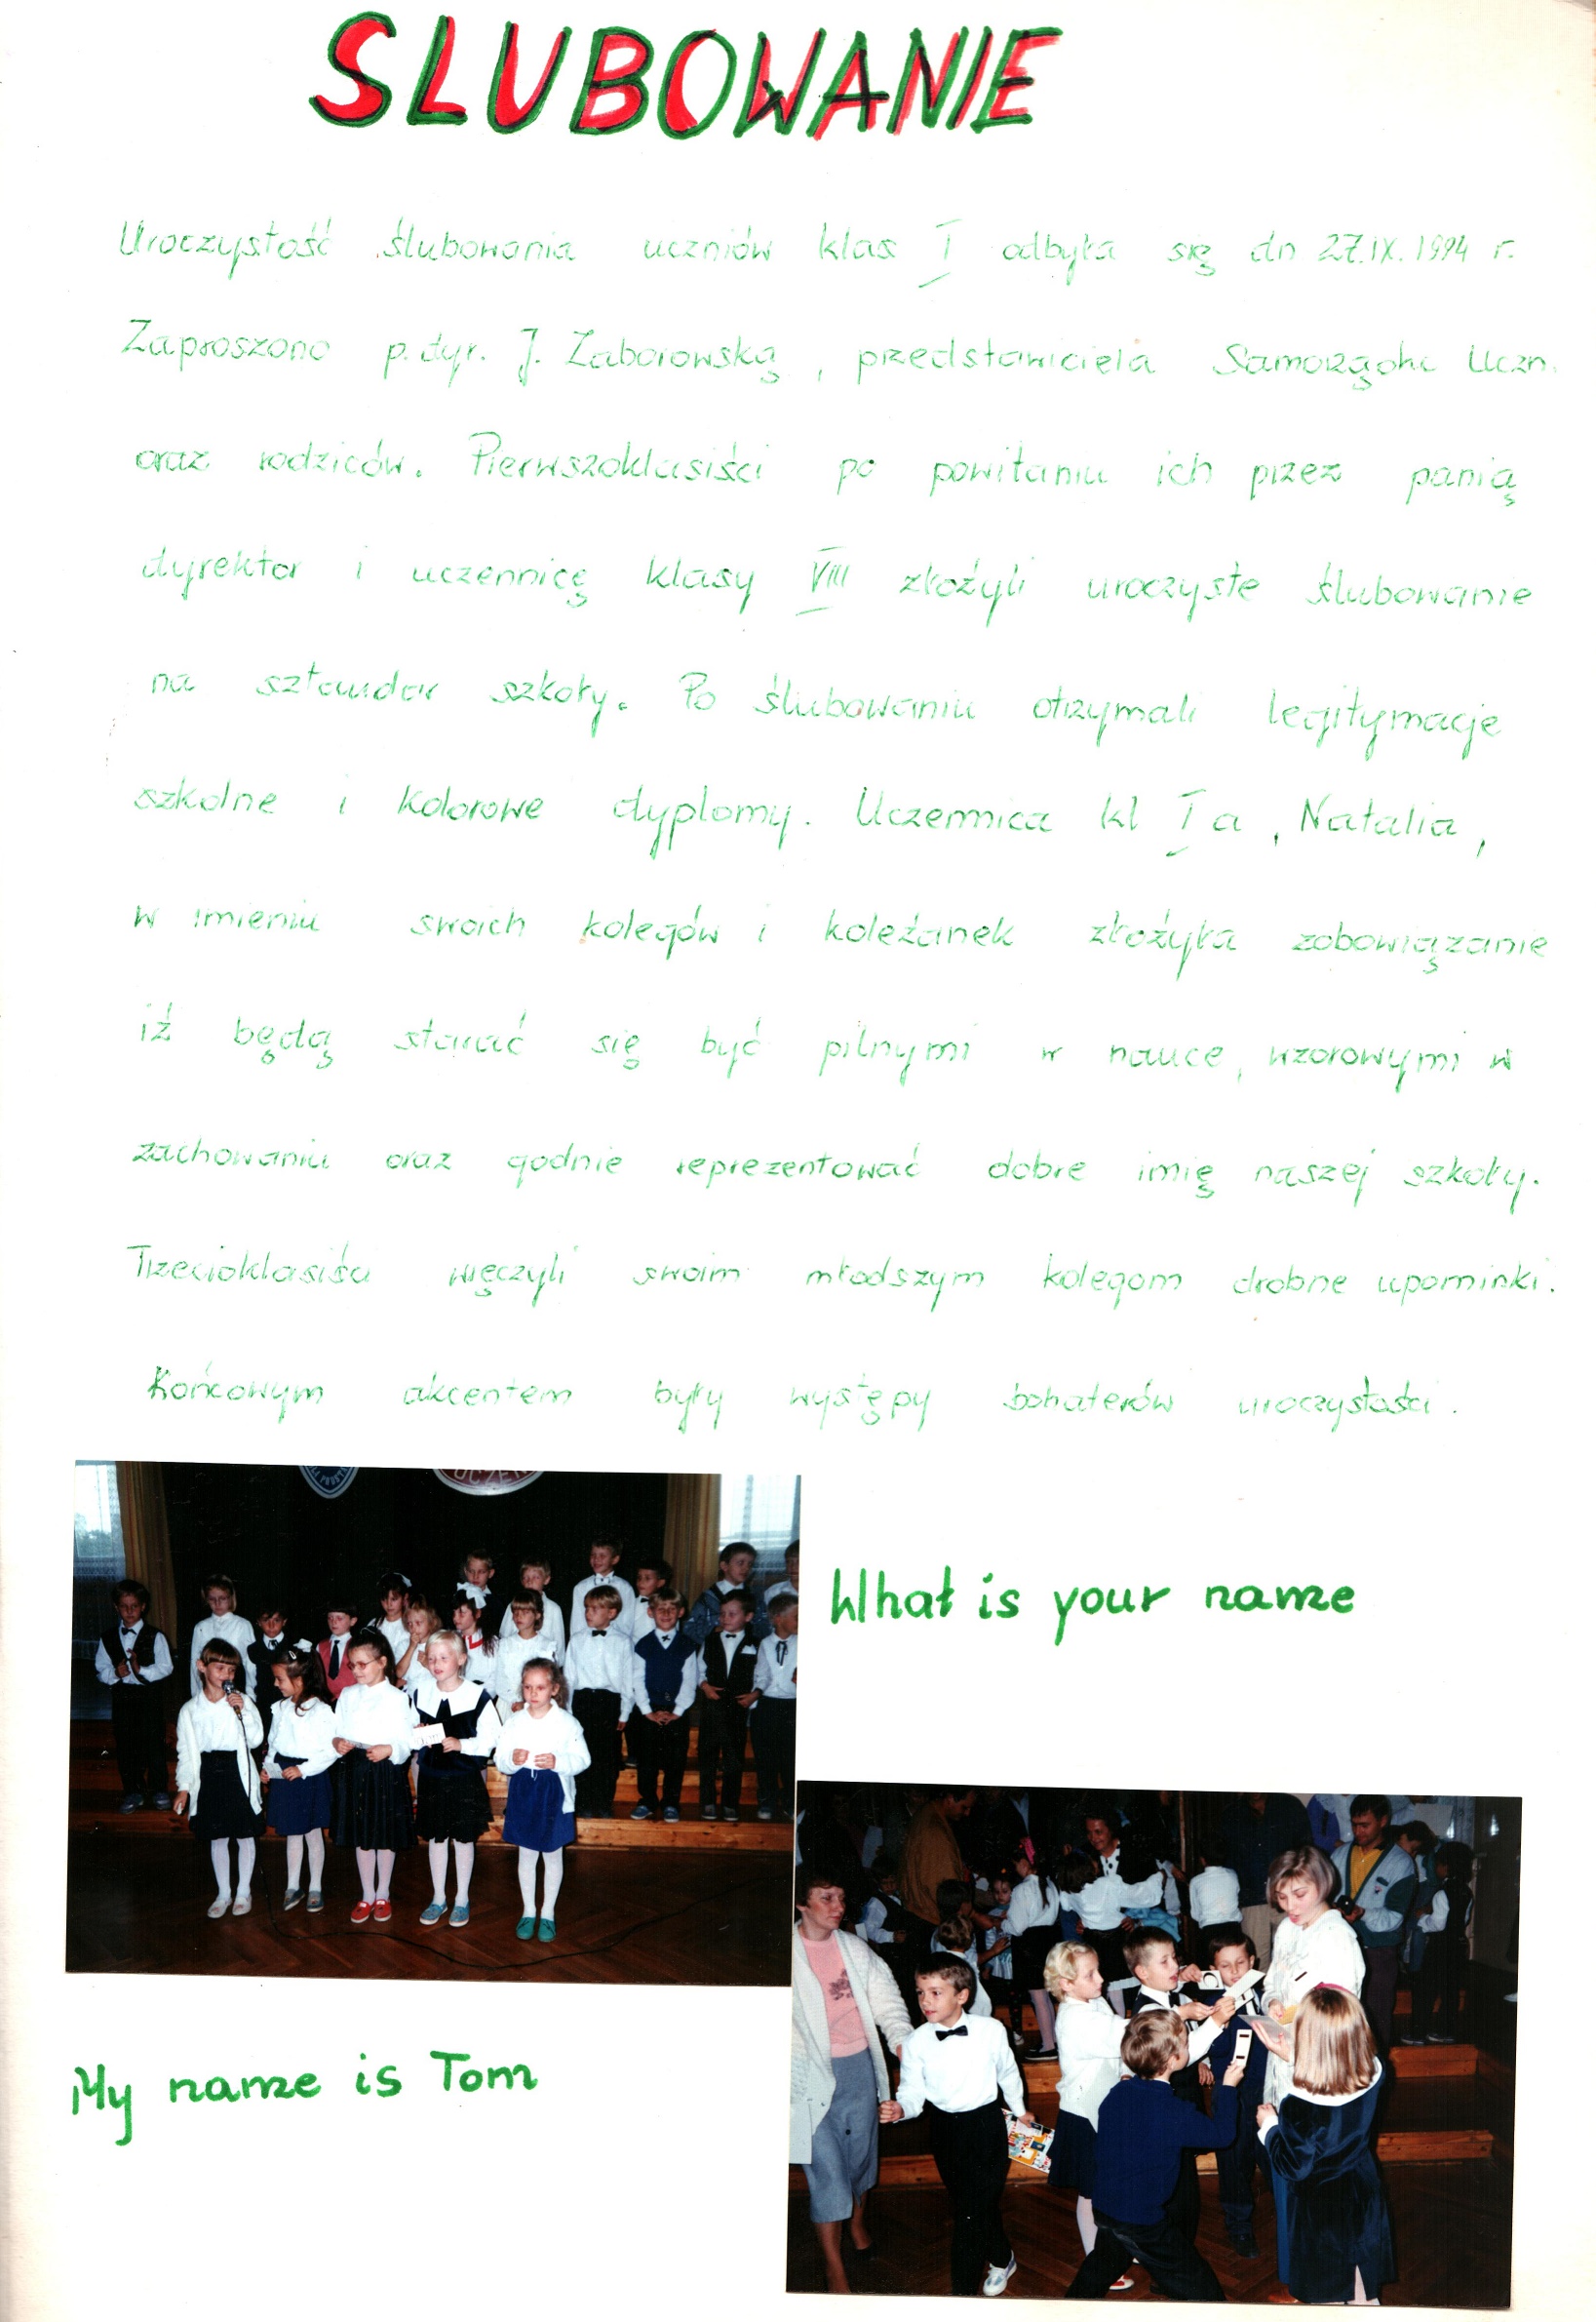 SLUBOWANIE
Uroczystość ślubowania uczniów klas I odbyła się dn 27.IX.1994 r.
Zaproszono p. dyr. J. Zaborowską, przedstawiciela Samorządu Uczn.
oraz rodziców. Pierwszoklasiści po powitaniu ich przez panią
dyrektor i uczennicę klasy VIII złożyli uroczyste ślubowanie
na sztandar szkoły. Po ślubowaniu otrzymali legitymacje
szkolne i kolorowe dyplomy. Uczennica kl I a, Natalia,
w imieniu swoich kolegów i koleżanek złożyła zobowiązanie
iż będą starać się być pilnymi w nauce, wzorowymi w
zachowaniu oraz godnie reprezentować dobre imię naszej szkoły.
Trzecioklasiści węczyli swoim młodszym kolegom drobne upominki.
Końcowym akcentem były występy bohaterów uroczystości.
UCZE
What is your name
My name is Tom